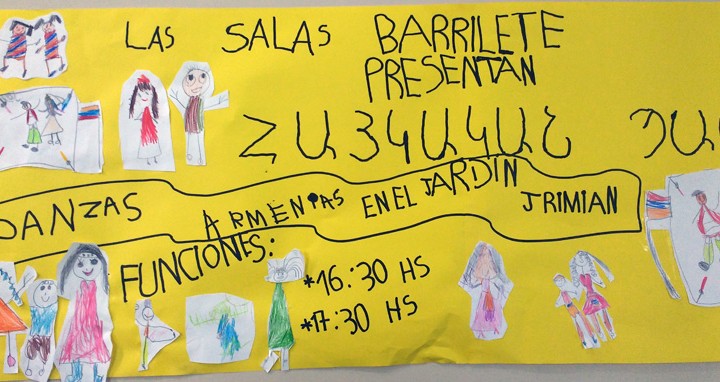 LAS SALAS BARRILETE
PRESENTAN
ՀԱՅԿԱԿԱՆ ՊԱ
DANZAS ARMENIAS EN EL JARDIN JRIMIAN
FUNCIONES:
*16:30 HS
*17:30 HS